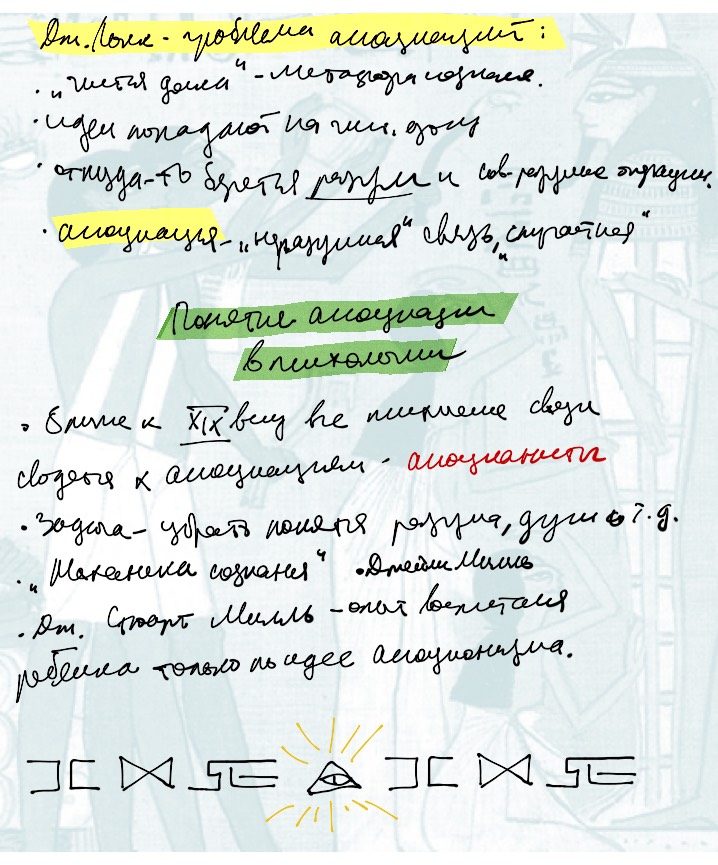 Дж. Локк - проблема ассоциаций:
· „чистая доска“ - метафора сознания.
· идеи попадают на чист. доску
· откуда-то берется разум и сов. разумные операции.
· ассоциация - „неразумная“ связь, „случайная“
Понятие ассоциации
в психологии
· Ближе к XIX веку все психические связи
сводятся к ассоциациям - ассоцианисты
· Задача - убрать понятия разума, души и т.д.
· „Механика сознания“ · Джеймс Милль
· Дж. Стюарт Милль - опыт воспитания
ребенка только по идее ассоцианизма.